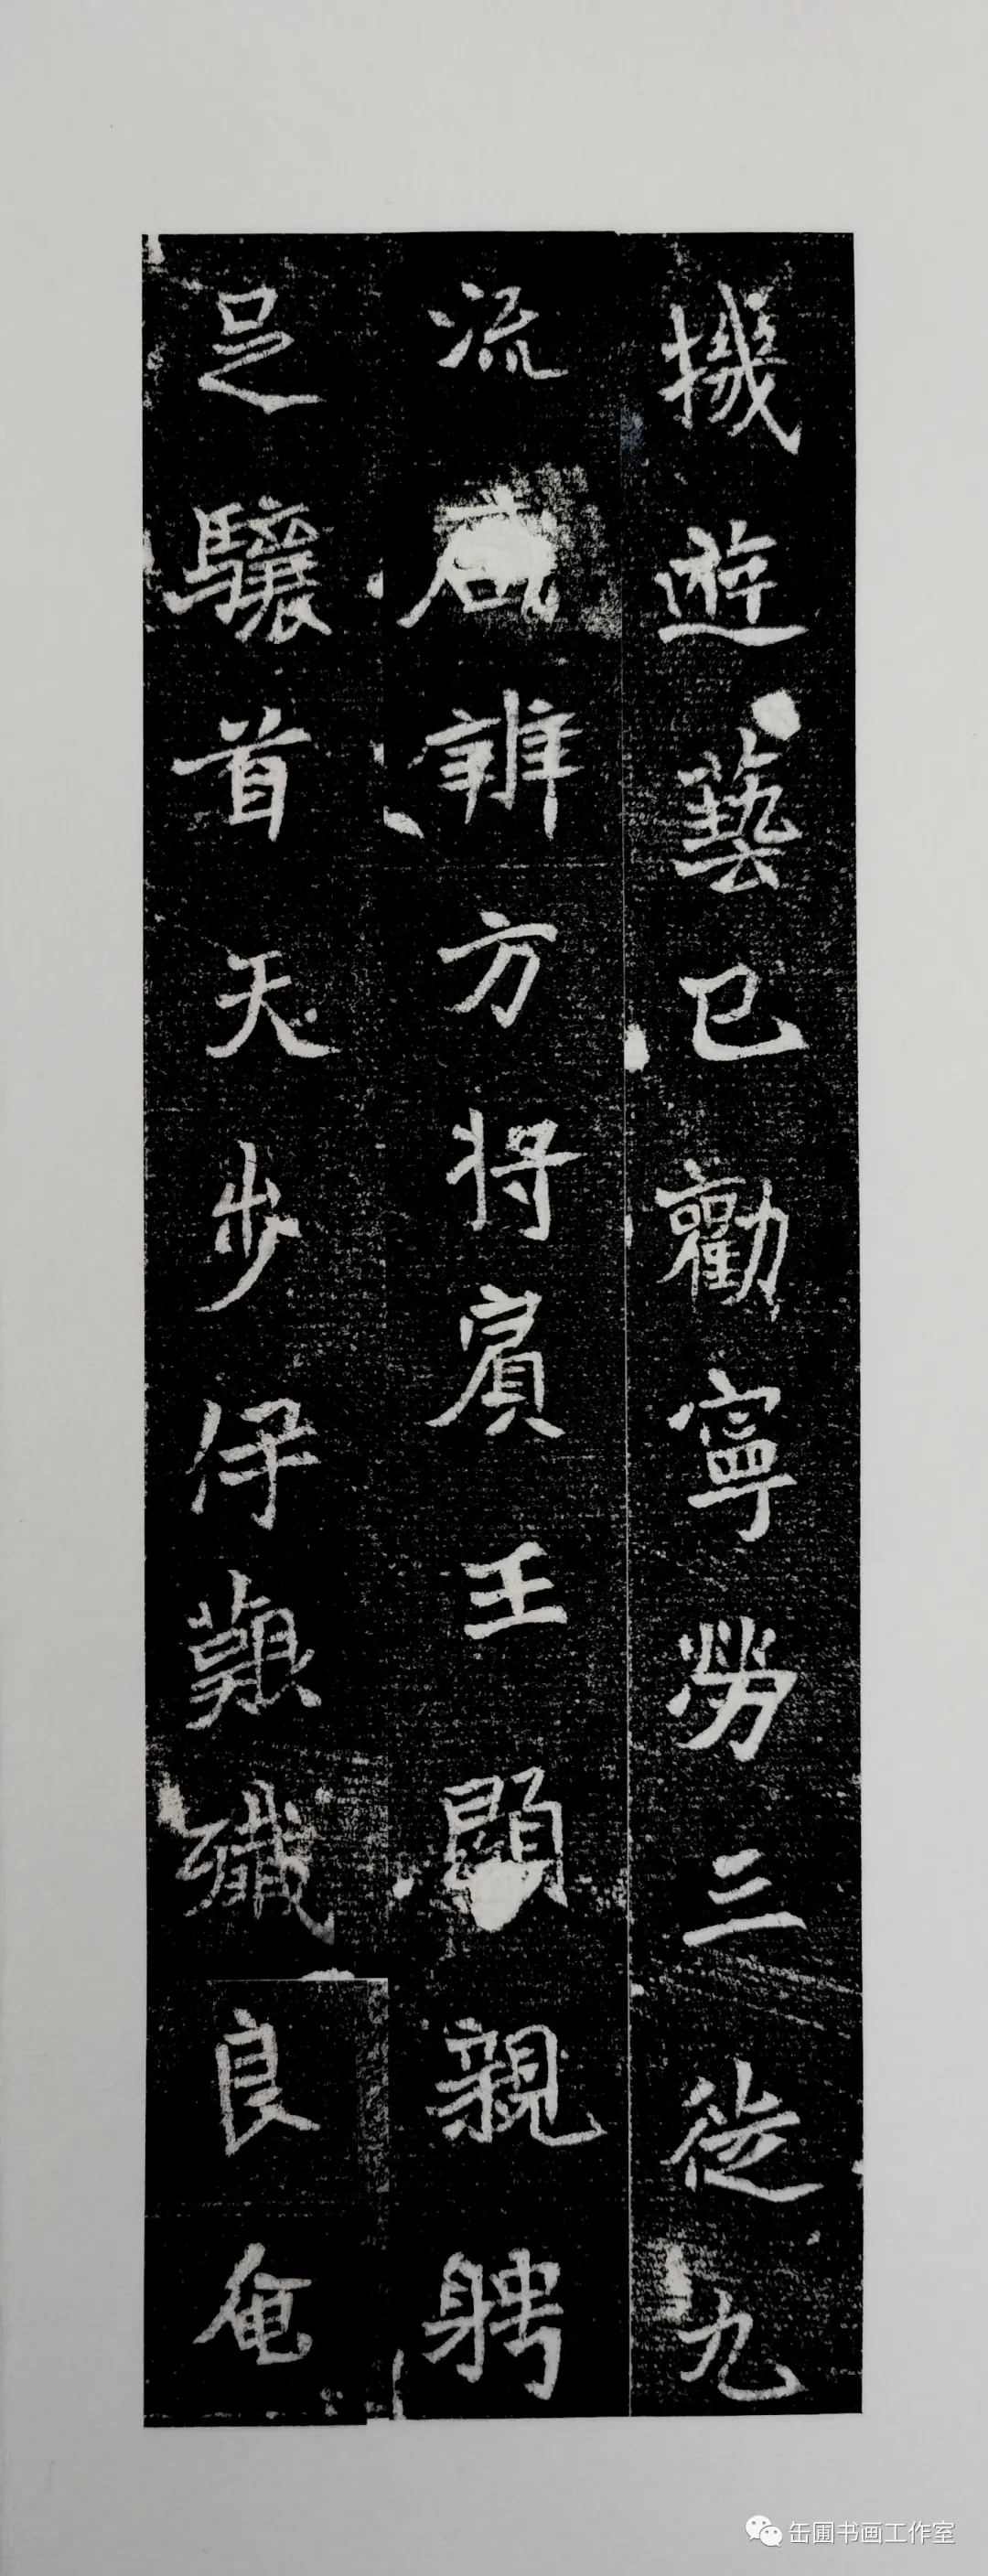 機遊藝已勸寧勞三徙九
流咸辨方將賓王顯親躬
足驤首天步伊艱殲良奄
缶圃书画工作室